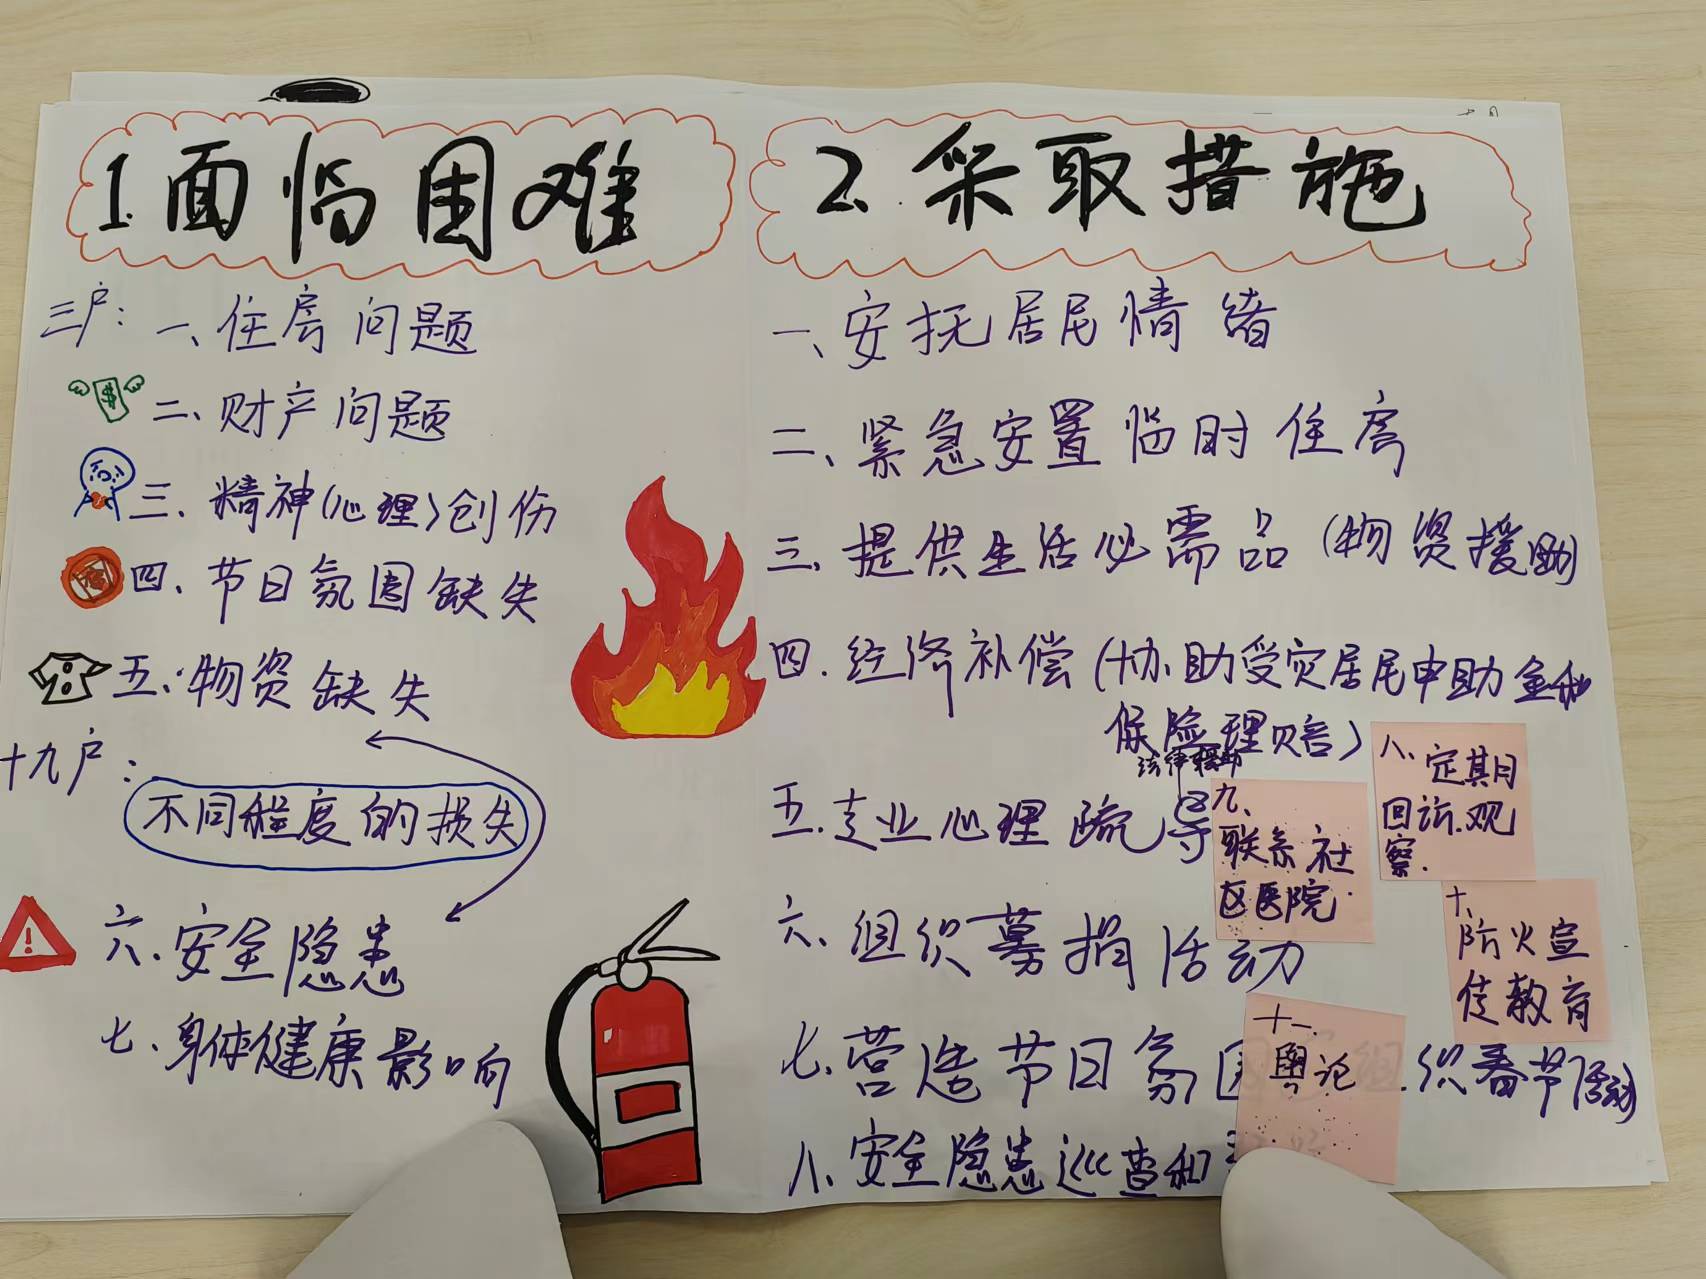 1.面临困难
三户：一、住房问题
二、财产问题
三、精神(心理)创伤
四、节日氛围缺失
五、物资缺失
十九户：
不同程度的损失
六、安全隐患
七、身体健康影响
2.采取措施
一、安抚居民情绪
二、紧急安置临时住房
三、提供生活必需品(物资援助)
四.经济补偿(协助受灾居民申助金和
保险理赔)
法律援助
五.专业心理疏导
六、组织募捐活动
七.营造节日氛围 组织春节活动
八、安全隐患巡查和
八、定期
回访.观
察.
九、
联系社
区医院.
十、
防火宣
传教育
十一、
舆论